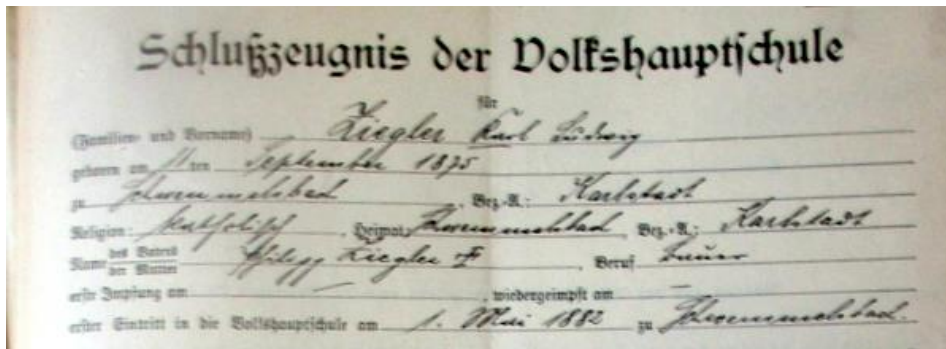 Schlußzeugnis der Volkshauptschule
für
(Familien- und Vorname) Ziegler Karl Ludwig
geboren am 11ten September 1875
zu Schwemmelsbach, Bez.-A.: Karlstadt
Religion: Katholisch, Heimat: Schwemmelsbach, Bez.-A.: Karlstadt
Name des Vaters Philipp Ziegler, Beruf Bauer
der Mutter
erste Impfung am —, wiedergeimpft am —
erster Eintritt in die Volkshauptschule am 1. Mai 1882 zu Schwemmelsbach.